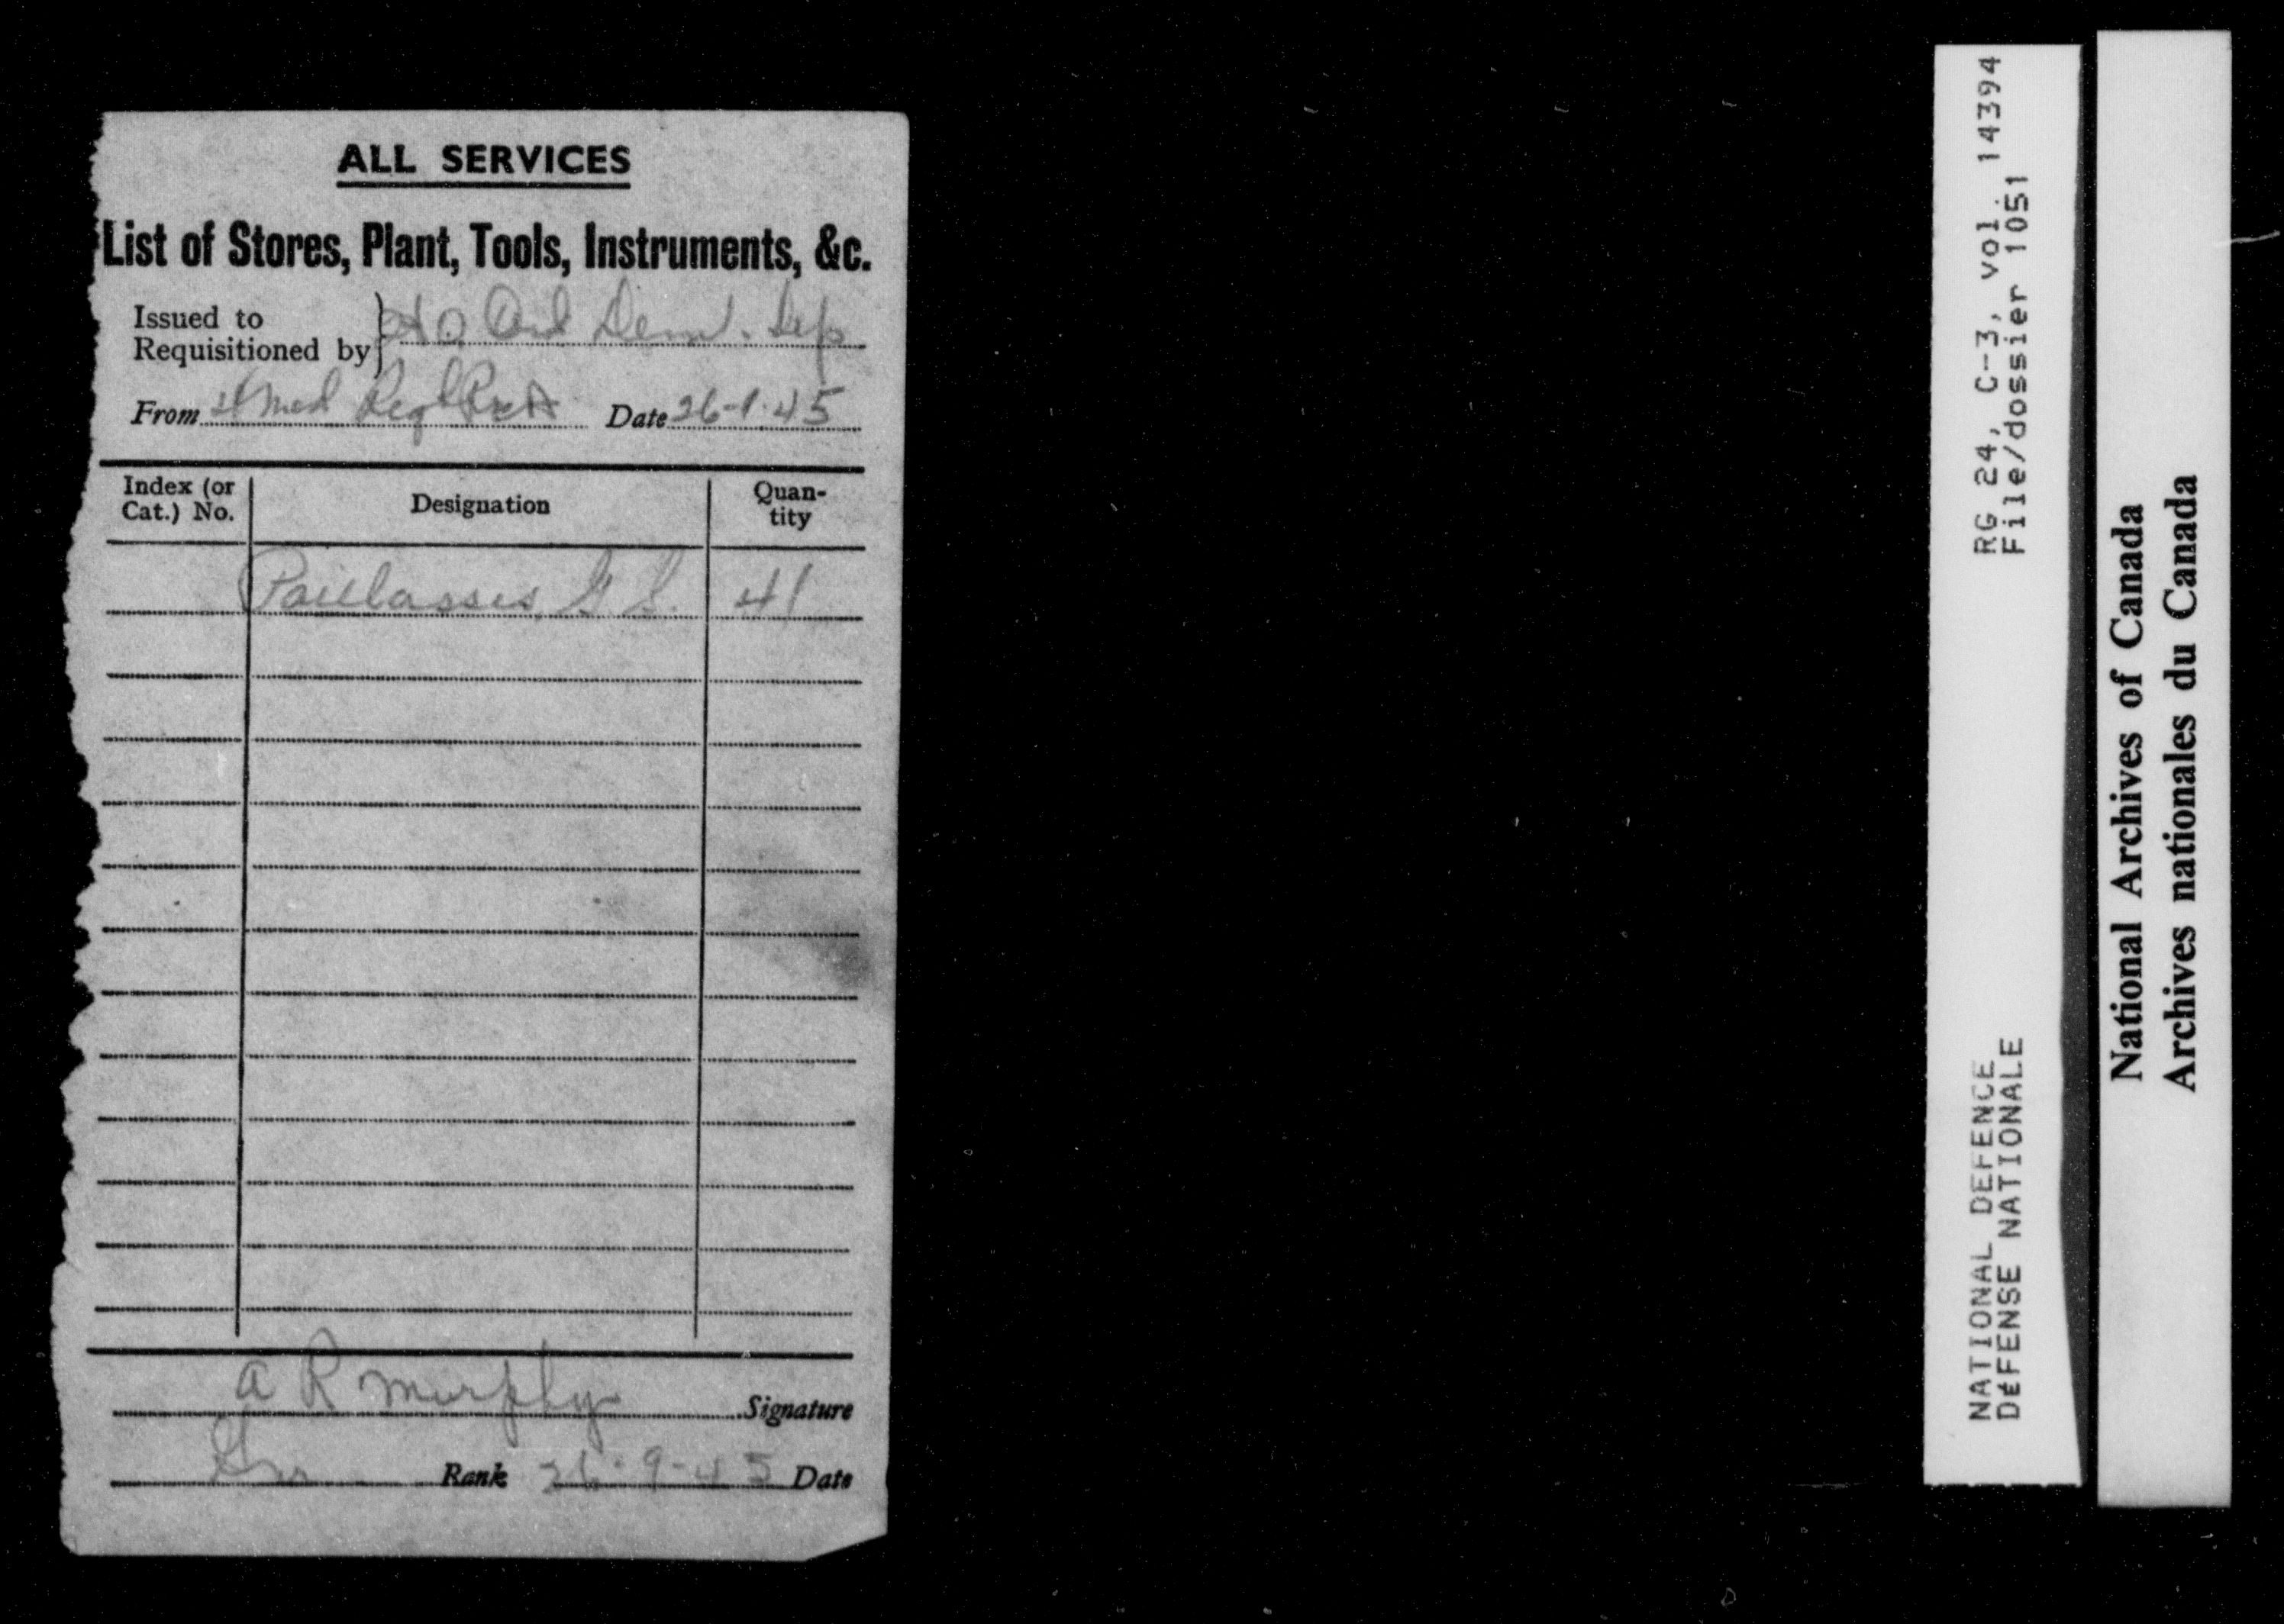 ALL SERVICES
List of Stores, Plant, Tools, Instruments, &c.
Issued to
Requisitioned by
From 4 Med Regt RCA Date 26-9-45
Index (or Cat.) No. Designation Quantity
Paillasses G.S. 41
A R Murphy Signature
Gnr Rank 26-9-45 Date
RG 24, C-3, vol. 14394
File/dossier 1051
NATIONAL DEFENCE
DÉFENSE NATIONALE
National Archives of Canada
Archives nationales du Canada